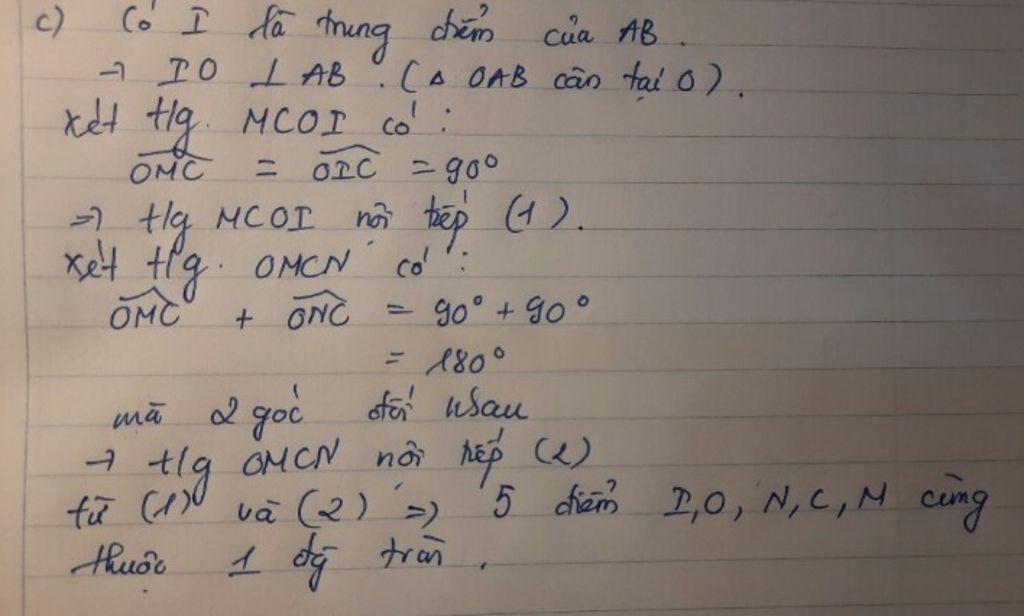 c) Có I là trung điểm của AB.
→ IO ⊥ AB. (△ OAB cân tại O).
xét t/g. MCOI có:
OMC = OIC = 90°
=) t/g MCOI nội tiếp (1).
xét t/g. OMCN có:
OMC + ONC = 90° + 90°
= 180°
mà 2 góc đối nhau
→ t/g OMCN nội tiếp (2)
từ (1) và (2) =) 5 điểm I,O, N, C, M cùng
thuộc 1 đg tròn.